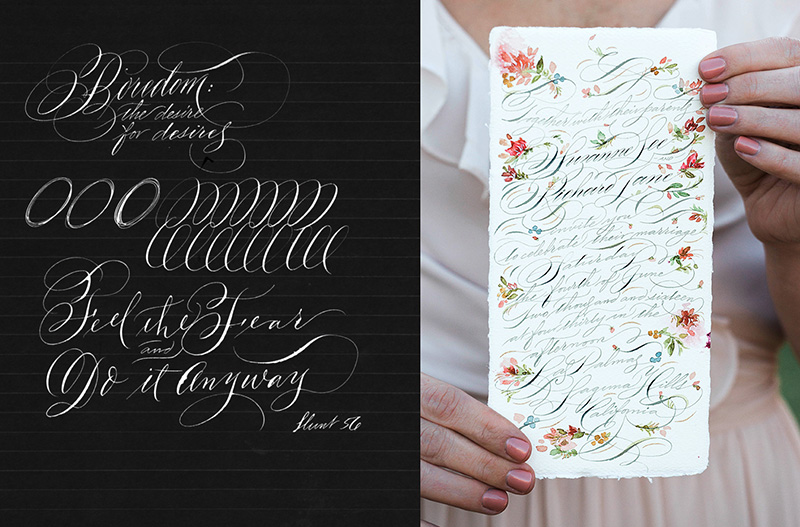 Boredom:
the desire
for desires
Feel the Fear
and
Do it Anyway
Hunt 56
Together with their parents
Suzanne Lee
and
Richard Lane
invite you
to celebrate their marriage
Saturday
the fourth of June
two thousand and sixteen
at four thirty in the
afternoon
Las Palmas
Laguna Hills
California